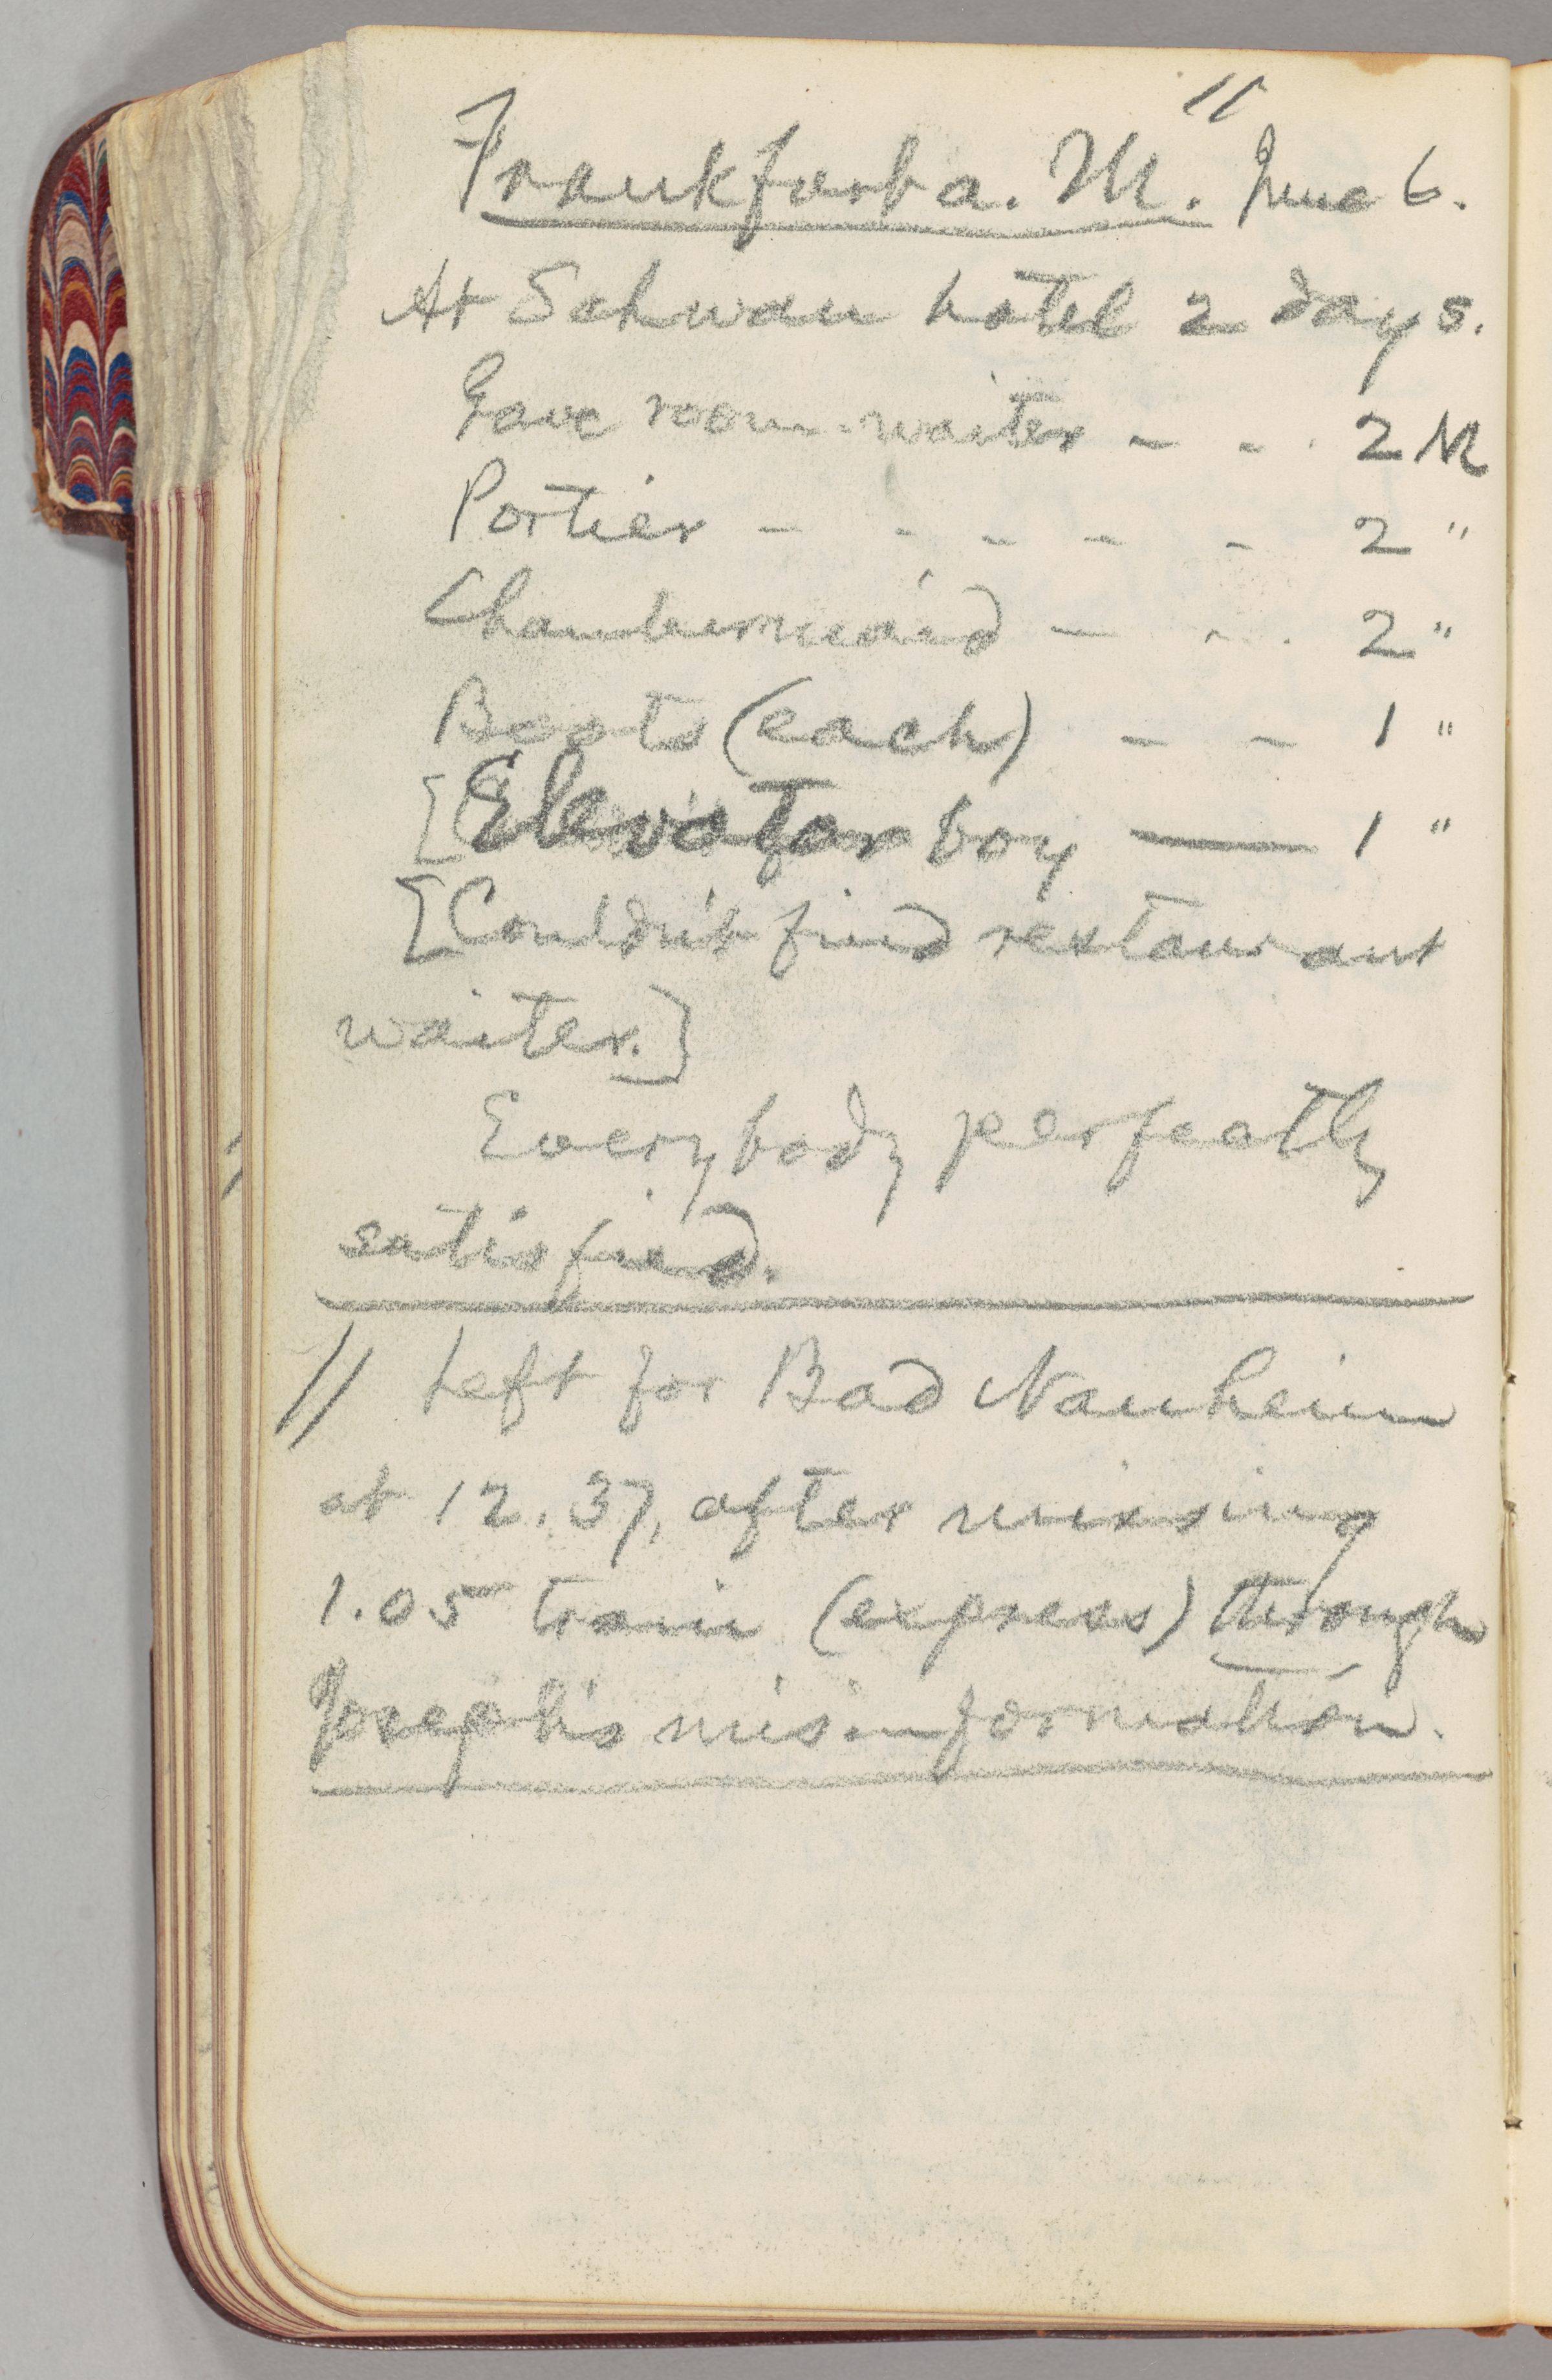 Frankfort a. M. June 6.
At Schwan hotel 2 days.
Gave room-waiter - - - 2 M
Portier - - - - - 2 "
Chambermaid - - - 2 "
Boots (each) - - 1 "
[Elevator boy — 1 "
[Couldn't find restaurant
waiter.]
Everybody perfectly
satisfied.
// Left for Bad Nauheim
at 12.37, after missing
1.05 train (express) through
Joseph's misinformation.